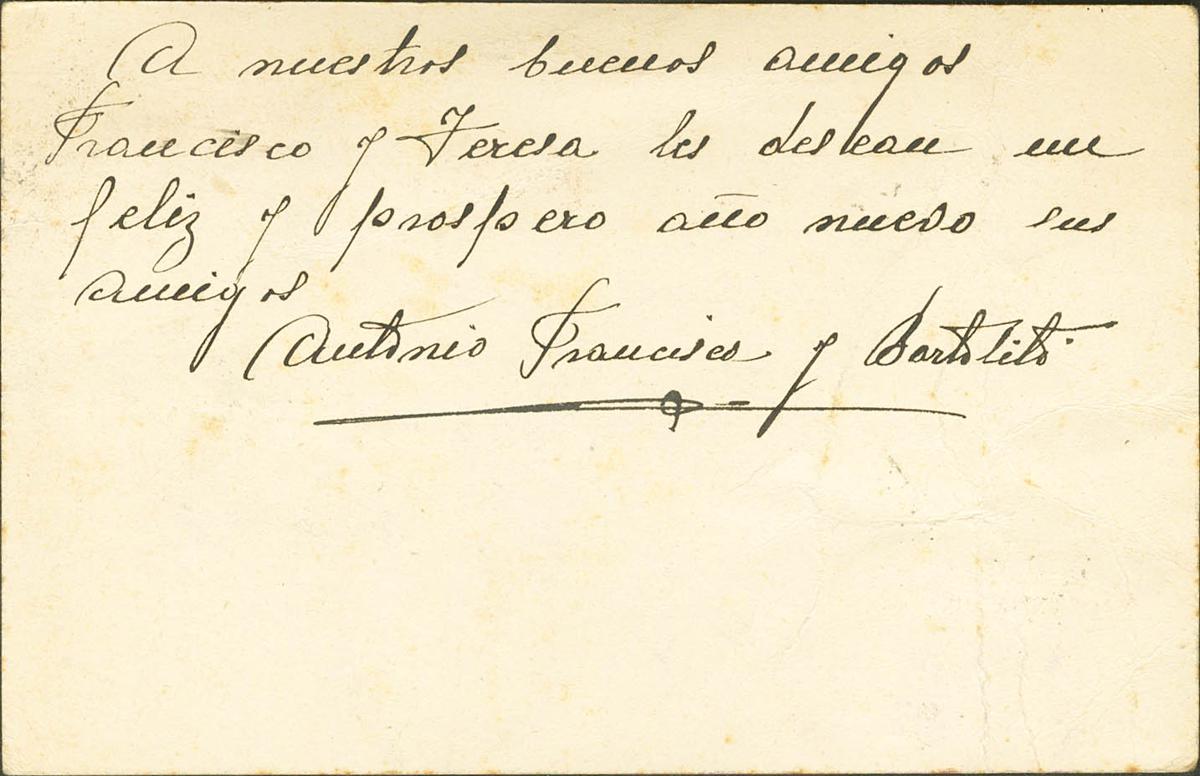 A nuestros buenos amigos
Francisco y Teresa les desean un
feliz y prospero año nuevo sus
amigos
Antonio Francisco y Bartolito